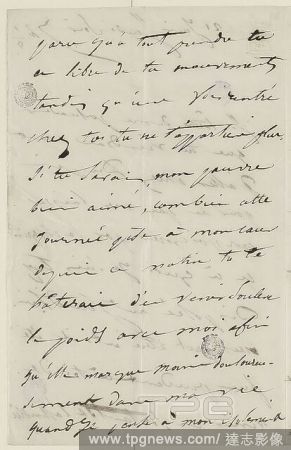 parce qu'à tout prendre tu
es libre de tes mouvements
tandis qu'une fois rentré
chez toi tu ne t'appartiens plus.
Si tu savais, mon pauvre
bien aimé, combien cette
journée pèse à mon cœur
depuis ce matin tu te
hâterais d'en venir soulever
le poids avec moi afin
qu'elle marque moins douloureu-
sement dans ma vie
quand je pense à mon
TPG
www.tpgnews.com / 達志影像